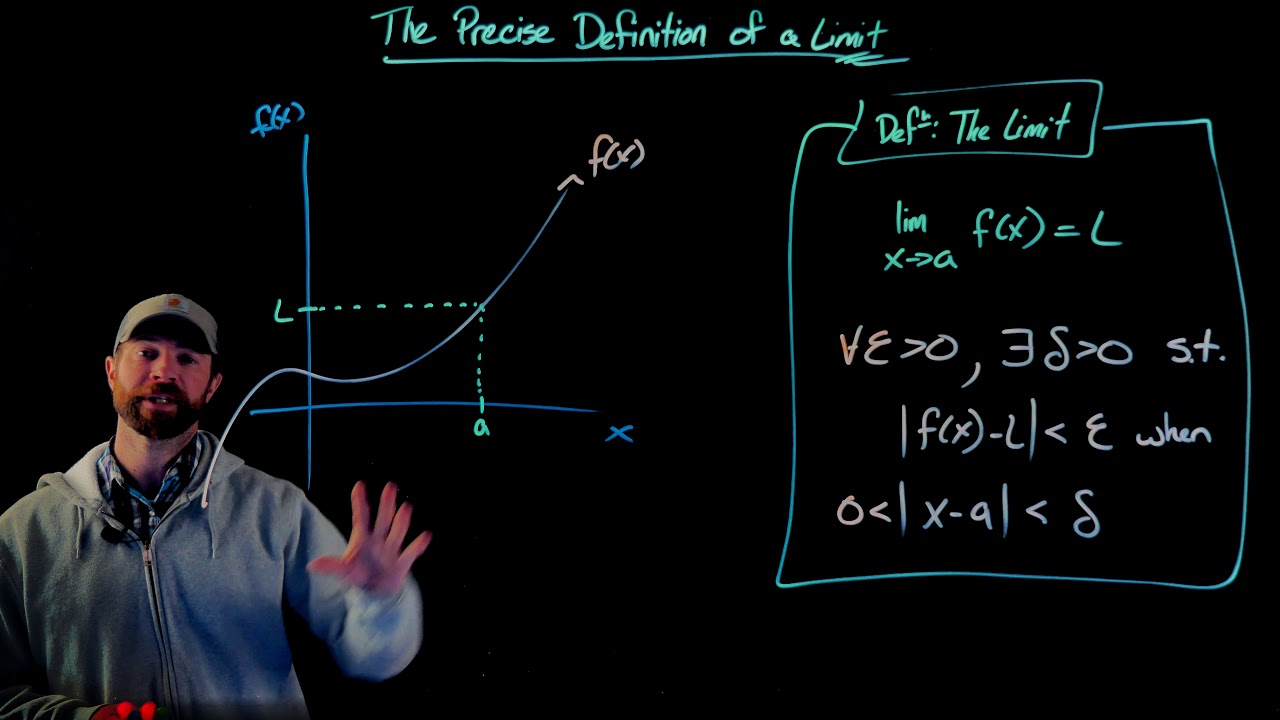 The Precise Definition of a Limit
f(x)
f(x)
L
a
x
Defⁿ: The Limit
lim f(x) = L
x→a
∀ε>0, ∃δ>0 s.t.
|f(x)-L|< ε when
0<|x-a|< δ